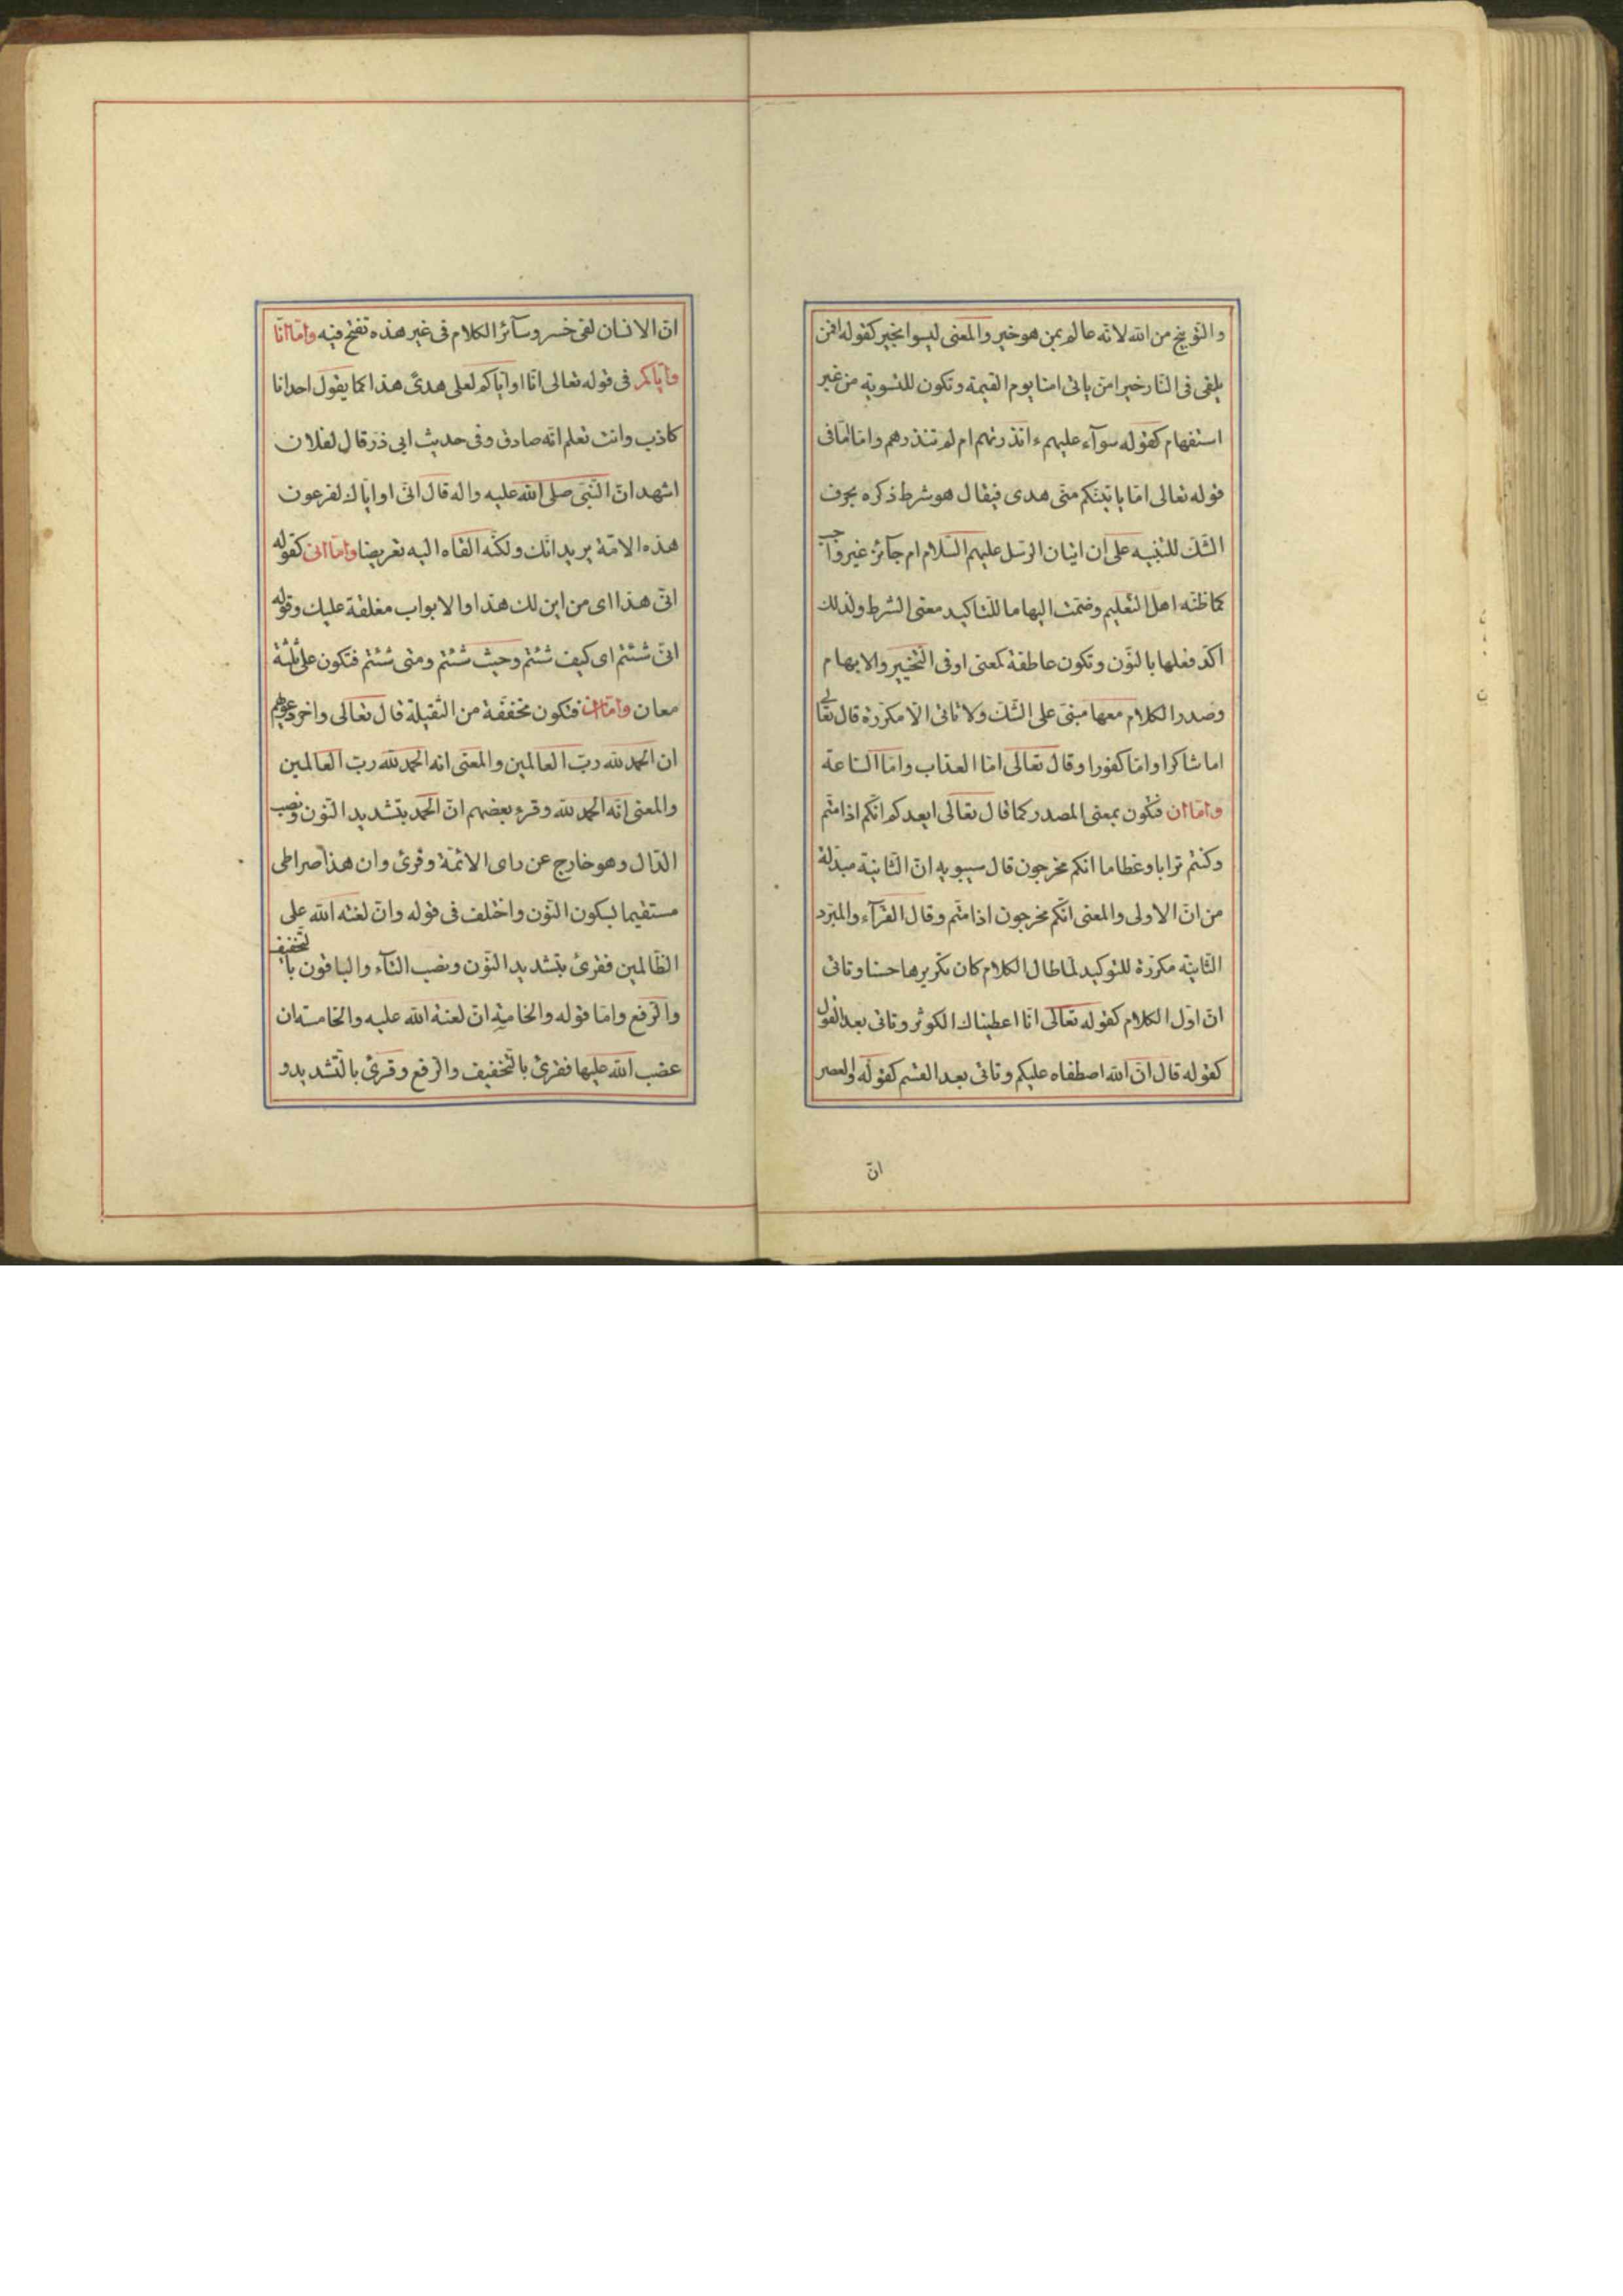 والتوبيخ من الله لانه عالم بمن هو خير والمعنى ليسوا بخير كقوله افمن
يلقى فى النار خير امن ياتى امنا يوم القيمة وتكون للتسوية من غير
استفهام كقوله سوآء عليهم ءانذرتهم ام لم تنذرهم واما امّا فى
قوله تعالى امّا ياتينكم منّى هدى فيقال هو شرط ذكره بحرف
الشك للتنبيه على ان اتيان الرسل عليهم السلام ام جآئز غير واجب
كما ظنّه اهل التعليم وضمّت اليها ما للتاكيد معنى الشرط ولذلك
اكّد فعلها بالنّون وتكون عاطفة كمعنى او فى التخيير والابهام
وصدر الكلام معها مبنىّ على الشكّ ولا تاتى الّا مكرّرة قال تعالى
اما شاكرا وامّا كفورا وقال تعالى امّا العذاب وامّا السّاعة
وامّا ان فتكون بمعنى المصدر كما قال تعالى ايعدكم انّكم اذا متّم
وكنتم ترابا وعظاما انكم مخرجون قال سيبويه انّ الثّانية مبدلة
من انّ الاولى والمعنى انّكم مخرجون اذا متّم وقال الفرّآء والمبرّد
الثّانية مكرّرة للتوكيد لمّا طال الكلام كان تكريرها حسنا وتاتى
انّ اوّل الكلام كقوله تعالى انّا اعطيناك الكوثر وتاتى بعد القول
كقوله قال انّ الله اصطفاه عليكم وتاتى بعد القسم كقوله والعصر
انّ
انّ الانسان لفى خسر وسآئر الكلام فى غير هذه تفتح فيه وامّا انّا
وايّاكم فى قوله تعالى انّا او ايّاكم لعلى هدىً هذا كما يقول احدانا
كاذب وانت تعلم انّه صادق وفى حديث ابى ذرّ قال لفلان
اشهد انّ النّبىّ صلى الله عليه واله قال انّى او ايّاك لفرعون
هذه الامّة يريد انّك ولكنّه القاه اليه تعريضا وامّا انى كقوله
انّى هذا اى من اين لك هذا والابواب مغلقة عليك وقوله
انّى شئتم اى كيف شئتم وحيث شئتم ومتى شئتم فتكون على ثلثة
معان وامّا ان فتكون مخفّفة من الثّقيلة قال تعالى واخر دعويهم
ان الحمد لله ربّ العالمين والمعنى انه الحمد لله ربّ العالمين
والمعنى انّه الحمد لله وقرء بعضهم انّ الحمد بتشديد النّون ونصب
الدّال وهو خارج عن راى الائمّة وقرئ وان هذا صراطى
مستقيما بسكون النّون واختلف فى قوله وانّ لعنة الله على
الظّالمين فقرئ بتشديد النّون ونصب التّآء والباقون بالتّخفيف
والرّفع وامّا قوله والخامسة انّ لعنة الله عليه والخامسة ان
غضب الله عليها فقرئ بالتّخفيف والرّفع وقرئ بالتّشديد و